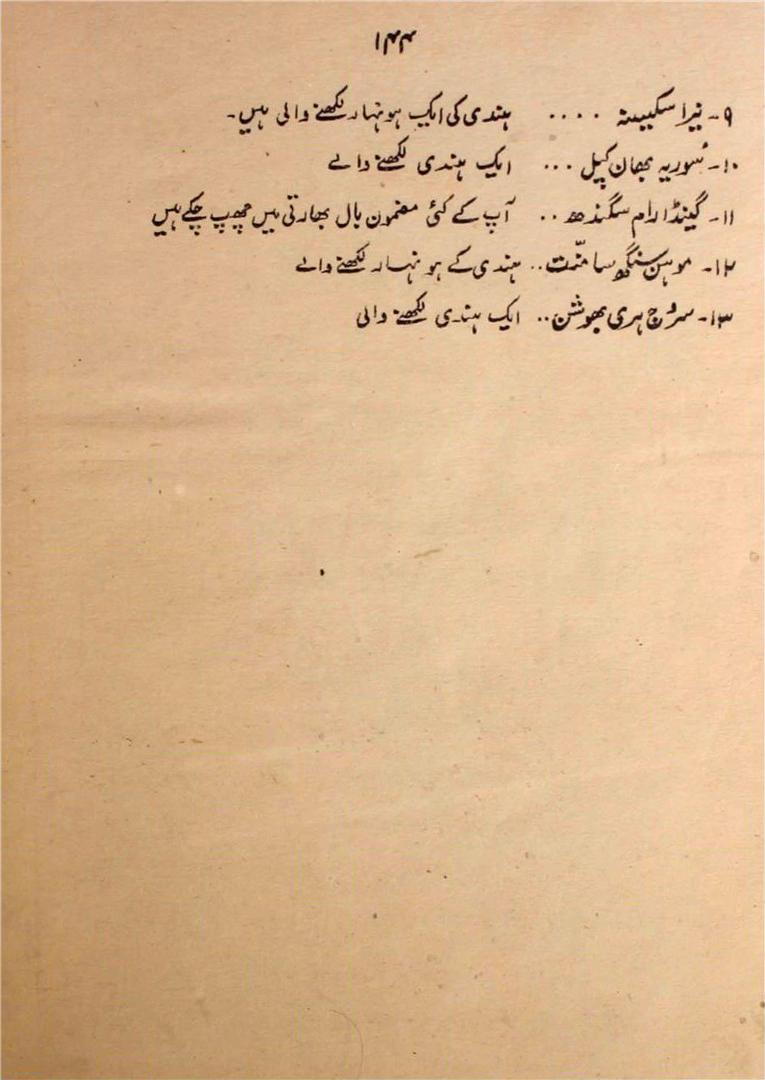 ۱۴۴
۹۔ نیرا سکسینہ .... ہندی کی ایک ہونہار لکھنے والی ہیں۔
۱۰۔ سُوریہ بھان کپل ... ایک ہندی لکھنے والے
۱۱۔ گینڈا رام سگندھ .. آپ کے کئی مضمون بال بھارتی میں چھپ چکے ہیں
۱۲۔ موہن سنگھ سامنت .. ہندی کے ہونہار لکھنے والے
۱۳۔ سروج ہری بھوشن .. ایک ہندی لکھنے والی